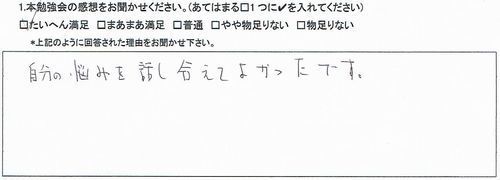 1.本勉強会の感想をお聞かせください。(あてはまる□1つに✔を入れてください)
☑たいへん満足 □まあまあ満足 □普通 □やや物足りない □物足りない
*上記のように回答された理由をお聞かせ下さい。
自分の悩みを話し合えてよかったです。